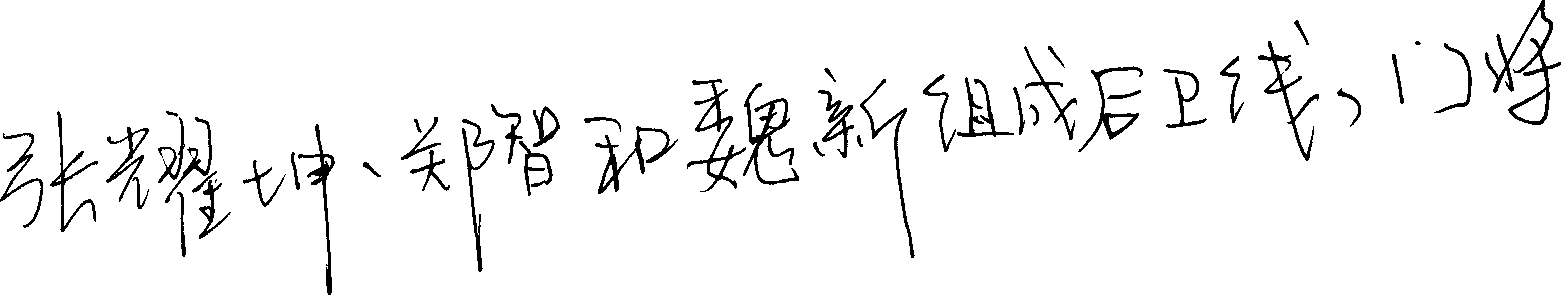 张耀坤、郑智和魏新组成后卫线，门将